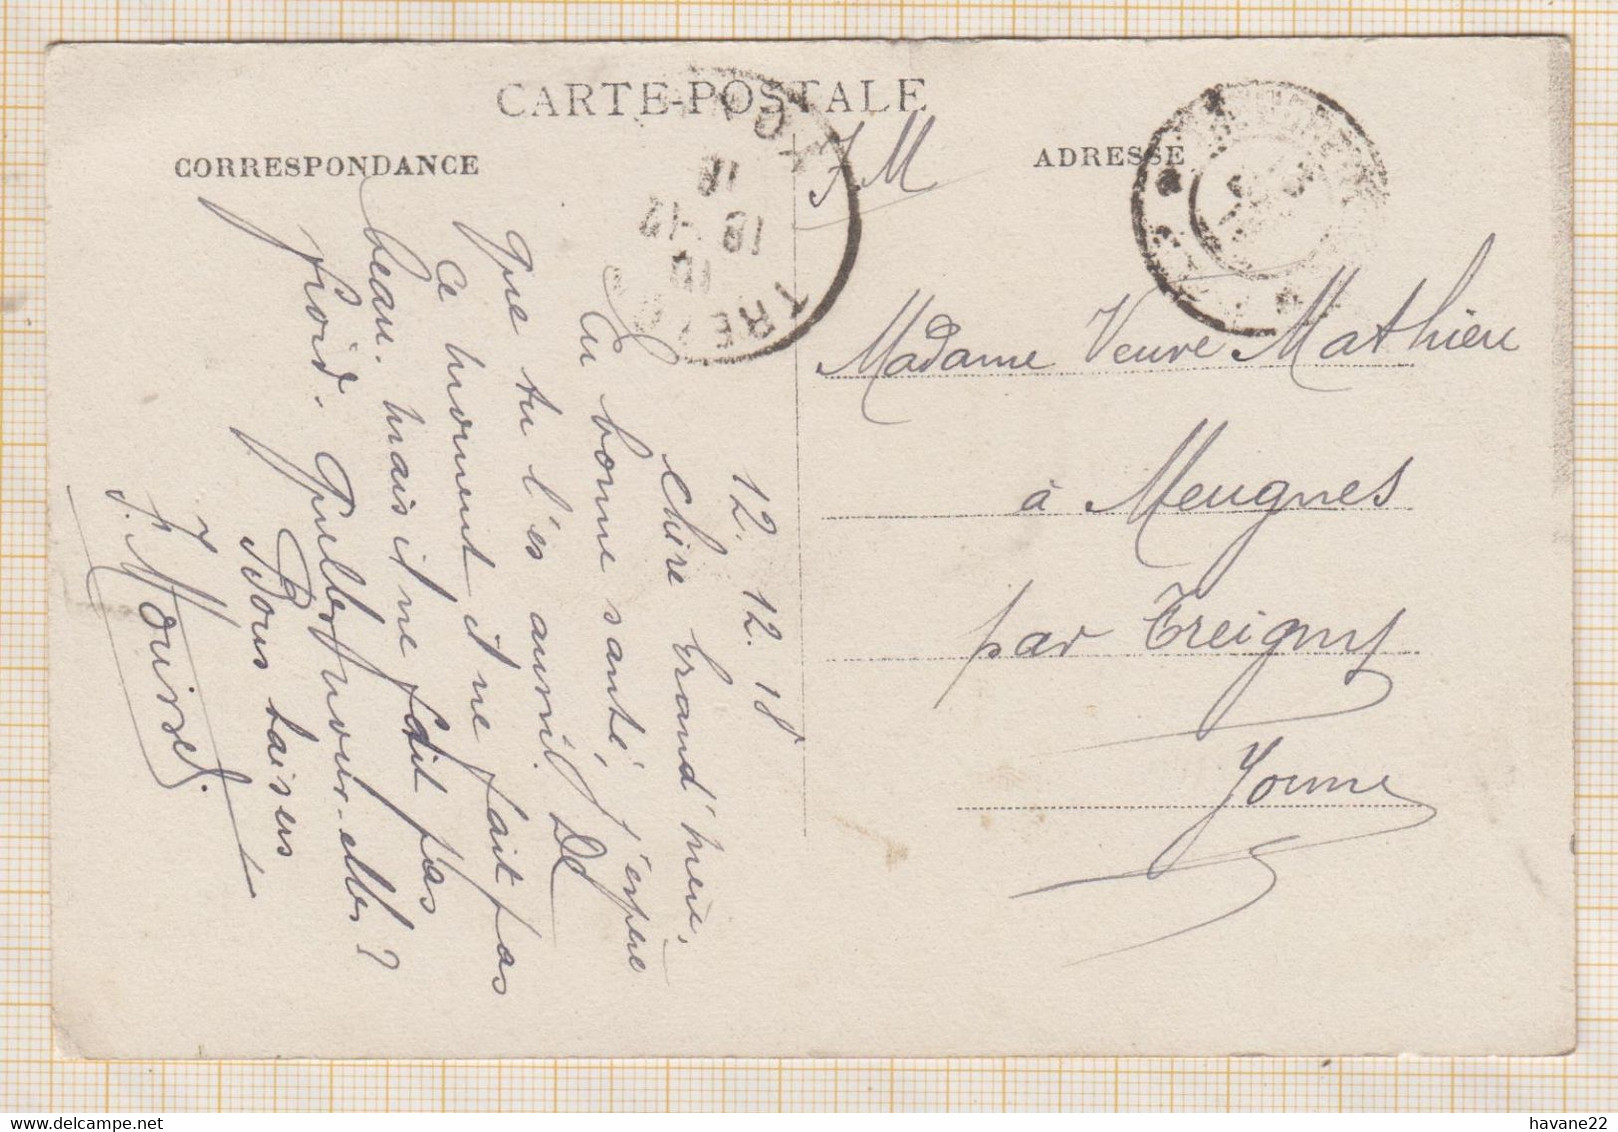 CARTE-POSTALE
CORRESPONDANCE
ADRESSE
F.M
12. 12. 18
Chère Grand'mère,
En bonne santé, j'espère
que tu l'es aussi. De
ce moment il ne fait pas
beau. mais il ne fait pas
froid. Quelles nouvelles?
Bons baisers
Madame Veuve Mathieu
à Meugnes
par Treigny
Yonne
TREIGNY
18
18 -12
18
havane22